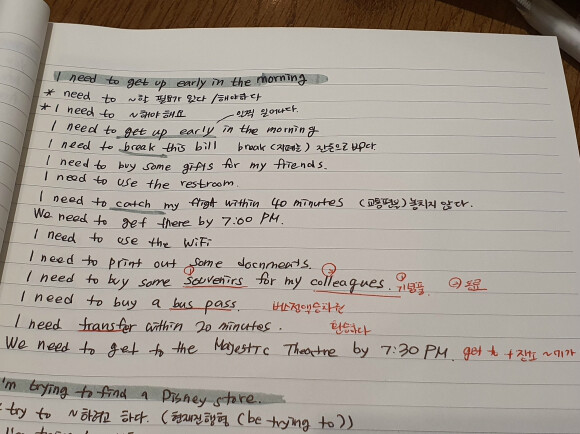 I need to get up early in the morning
* need to ~할 필요가 있다 / 해야하다
* I need to ~해야 해요
일찍 일어나다.
I need to get up early in the morning
I need to break this bill break (지폐를) 잔돈으로 바꾸다.
I need to buy some gifts for my friends.
I need to use the restroom.
I need to catch my flight within 40 minutes (교통편을) 놓치지 않다.
We need to get there by 7:00 PM.
I need to use the WiFi
I need to print out some documents.
I need to buy some souvenirs for my colleagues. ① 기념품 ② 동료
I need to buy a bus pass. 버스정액승차권
I need transfer within 20 minutes. 환승하다
We need to get to the Majestic Theatre by 7:30 PM. get to + 장소 ~에 가다
I'm trying to find a Disney store.
try to ~하려고 하다. (현재진행형 (be trying to))